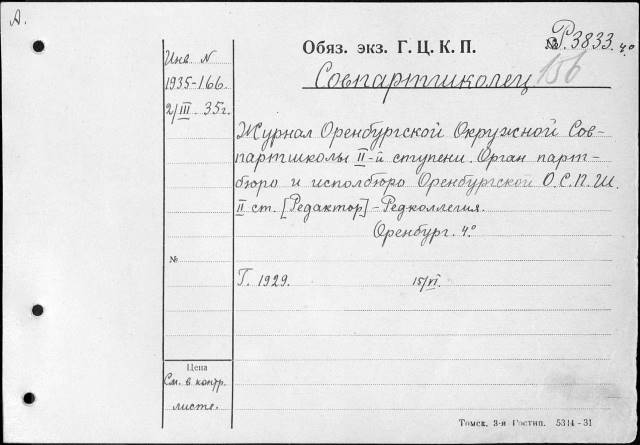 А.
Обяз. экз. Г. Ц. К. П.
№ Р.3833. 4.º
156
Совпартшколец
Инв. N
1935-166.
2/III. 35г.
Журнал Оренбургской Окружной Сов-
партшколы II-й ступени. Орган парт-
бюро и исполбюро Оренбургской О.С.П.Ш.
II ст. [Редактор] - Редколлегия.
Оренбург. 4.º
№
Г. 1929. 15/VI.
Цена
См. в контр.
листе.
Томск. 3-я Гостип. 5314-31